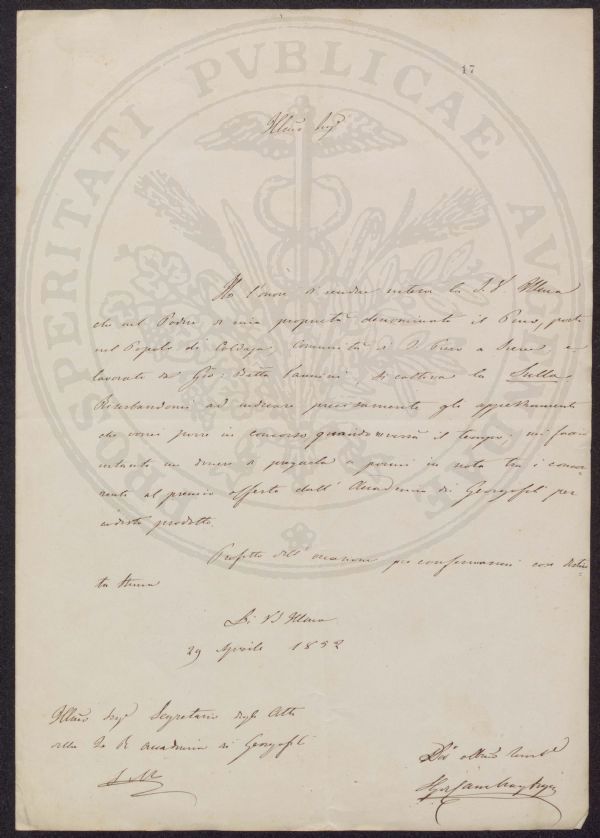 17
Illmo Sigr
Ho l'onore di rendere intesa la S. V. Illma
che nel Podere di mia proprietà denominato il Pino, posto
nel Popolo di Coldaja Comunità di S. Piero a Sieve e
lavorato da Gio: Batta Vannini, si coltiva la Sulla.
Riserbandomi ad indicare precisamente gli appezzamenti
che vorrei porre in concorso quando verrà il tempo. mi faccio
intanto un dovere di pregarla a pormi in nota tra i concor
renti al premio offerto dall' Accademia dei Georgofili per
codesto prodotto.
Profitto dell' occasione per confermarmi con distin
ta stima
Di VS Illma
29 Aprile 1852
Illmo Sigr Segretario degli Atti
della I. e R. Accademia dei Georgofili
S. M.
PROSPERITATI PVBLICAE AVGENDAE